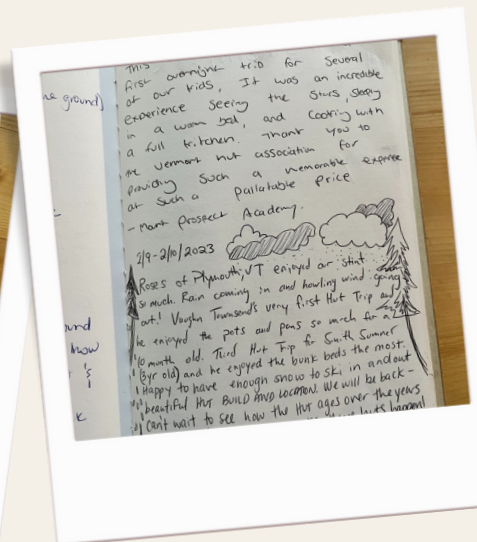 This
first overnight trip for several
of our kids, It was an incredible
experience seeing the stars, sleepy
in a warm bed, and cooking with
a full kitchen. Thank you to
the vermont hut association for
providing such a memorable experiee
at such a pallatable price
- Mount Prospect Academy.
2/9-2/10/2023
Roses of Plymouth, VT enjoyed or stint
so much. Rain coming in and howling wind going
out! Vaughn Townsend's very first Hut Trip and
he enjoyed the pots and pans so much for a
10 month old. Third Hut Trip for Smith Summer
(3yr old) and he enjoyed the bunk beds the most.
Happy to have enough snow to ski in and out
beautiful HUT BUILD AND LOCATION. We will be back-
Can't wait to see how the Hut ages over the years
he ground)
und
how
's
k